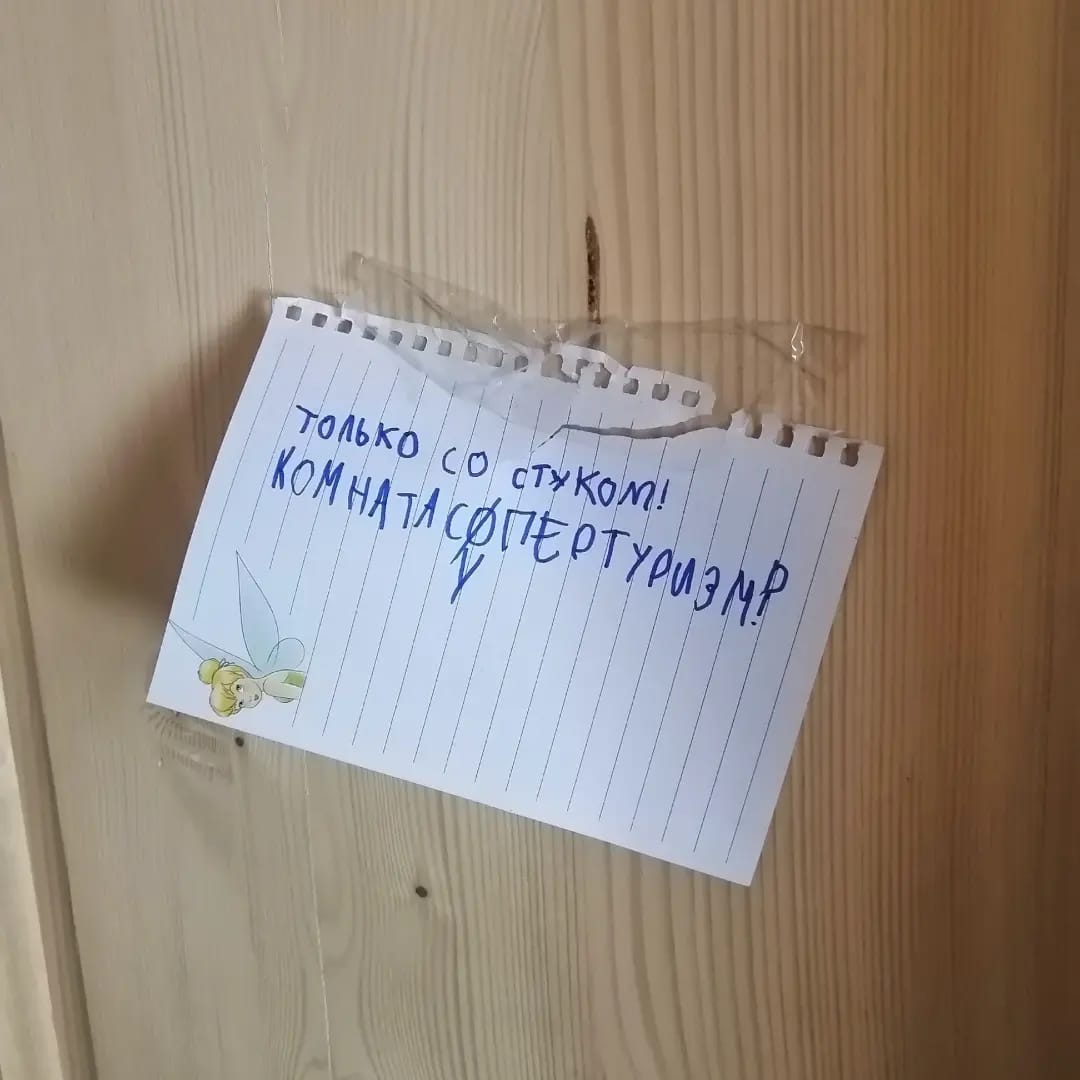 ТОЛЬКО СО СТУКОМ!
КОМНАТА СУПЕРТУРИЗМ!?